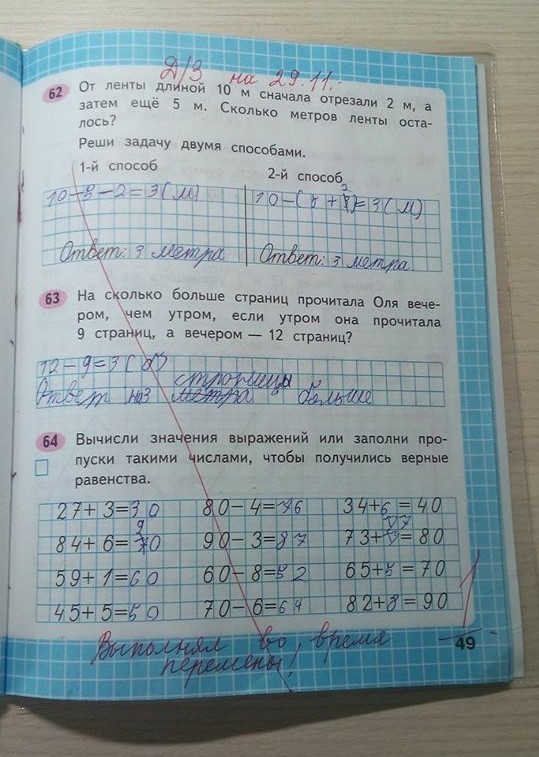 Д/З на 29.11.
62 От ленты длиной 10 м сначала отрезали 2 м, а
затем ещё 5 м. Сколько метров ленты оста-
лось?
Реши задачу двумя способами.
1-й способ 2-й способ
10-5-2=3(м) 10-( + )=3(м)
Ответ: 3 метра Ответ: 3 метра.
63 На сколько больше страниц прочитала Оля вече-
ром, чем утром, если утром она прочитала
9 страниц, а вечером — 12 страниц?
12-9=3
Ответ на3 больше
64 Вычисли значения выражений или заполни про-
пуски такими числами, чтобы получились верные
равенства.
27+3=30 80-4=76 34+6=40
84+6=90 90-3=87 73+7=80
59+1=60 60-8=52 65+5=70
45+5=50 70-6=64 82+8=90
Выполнял во время
перемены!
49